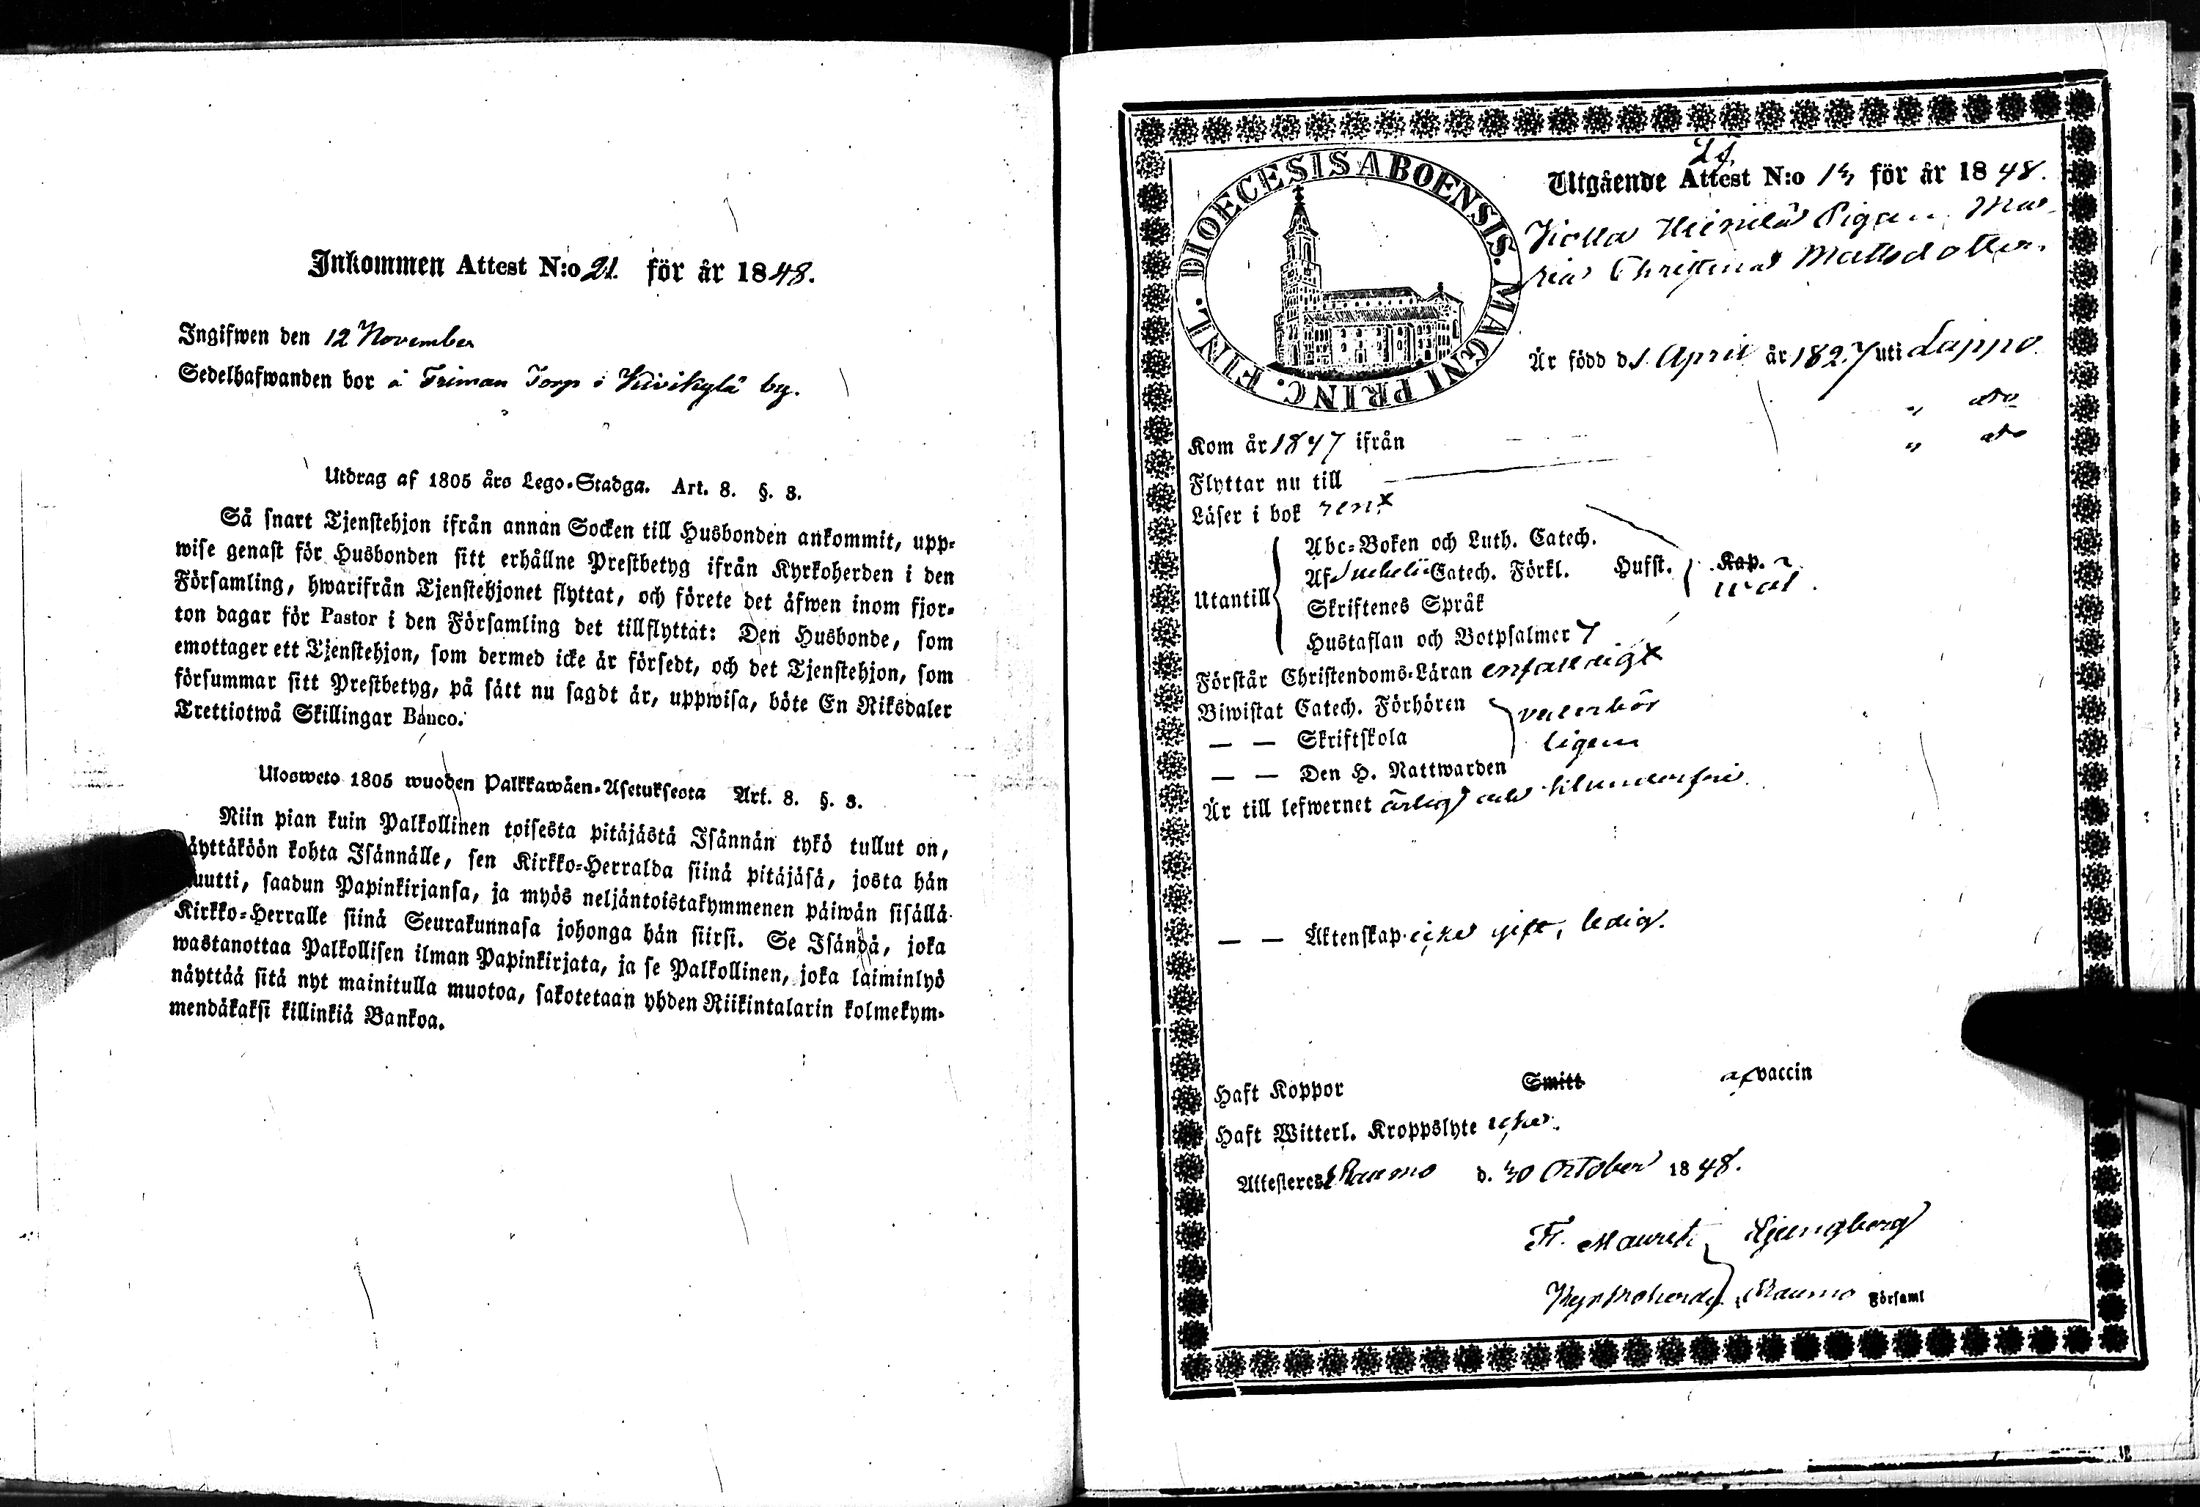 Inkommen Attest N:o 21. för år 1848.
Ingifwen den 12 November
Sedelhafwanden bor å Friman Torp i Kivikylä by.
Utdrag af 1805 års Lego-Stadga. Art. 8. §. 3.
Så snart Tjenstehjon ifrån annan Socken till Husbonden ankommit, upp-
wise genast för Husbonden sitt erhållne Prestbetyg ifrån Kyrkoherden i den
Församling, hwarifrån Tjenstehjonet flyttat, och förete det äfwen inom fjor-
ton dagar för Pastor i den Församling det tillflyttat: Den Husbonde, som
emottager ett Tjenstehjon, som dermed icke är försedt, och det Tjenstehjon, som
försummar sitt Prestbetyg, på sätt nu sagdt är, uppwisa, böte En Riksdaler
Trettiotwå Skillingar Banco.
Ulosweto 1805 wuoden Palkkawäen-Asetuksesta Art. 8. §. 3.
Niin pian kuin Palkollinen toisesta pitäjästä Isännän tykö tullut on,
äyttäköön kohta Isännälle, sen Kirkko-Herralda siinä pitäjäsä, josta hän
uutti, saadun Papinkirjansa, ja myös neljäntoistakymmenen päiwän sisällä
Kirkko-Herralle siinä Seurakunnasa johonga hän siirsi. Se Isändä, joka
wastanottaa Palkollisen ilman Papinkirjata, ja se Palkollinen, joka laiminlyö
näyttää sitä nyt mainitulla muotoa, sakotetaan yhden Riikintalarin kolmekym-
mendäkaksi killinkiä Bankoa.
DIOECESIS ABOENSIS. MAGNI PRINC. FINL.
Utgående Attest N:o för år 1848.
Heinilä Pigan Ma-
ria Christina Mattsdotter.
Är född d. 1. April år 1827 uti Lappo
" dto
Kom år 1847 ifrån " dto
Flyttar nu till
Läser i bok rent
Utantill
Abc-Boken och Luth. Catech.
Af Svebelii Catech. Förkl. Husst. Kap.
wäl.
Skriftenes Språk
Hustaflan och Botpsalmer 7
Förstår Christendoms-Läran enfaldigt
Biwistat Catech. Förhören vederbör
— — Skriftskola ligen
— — Den H. Nattwarden
Är till lefwernet ärlig och
— — Äktenskap icke gift, ledig.
Haft Koppor Smitt af vaccin
Haft Witterl. Kroppslyte icke.
Attesteres Raumo d. 30 October 1848.
Fr. Maurit. Ljungberg
Kyrkoherde i Raumo Församl